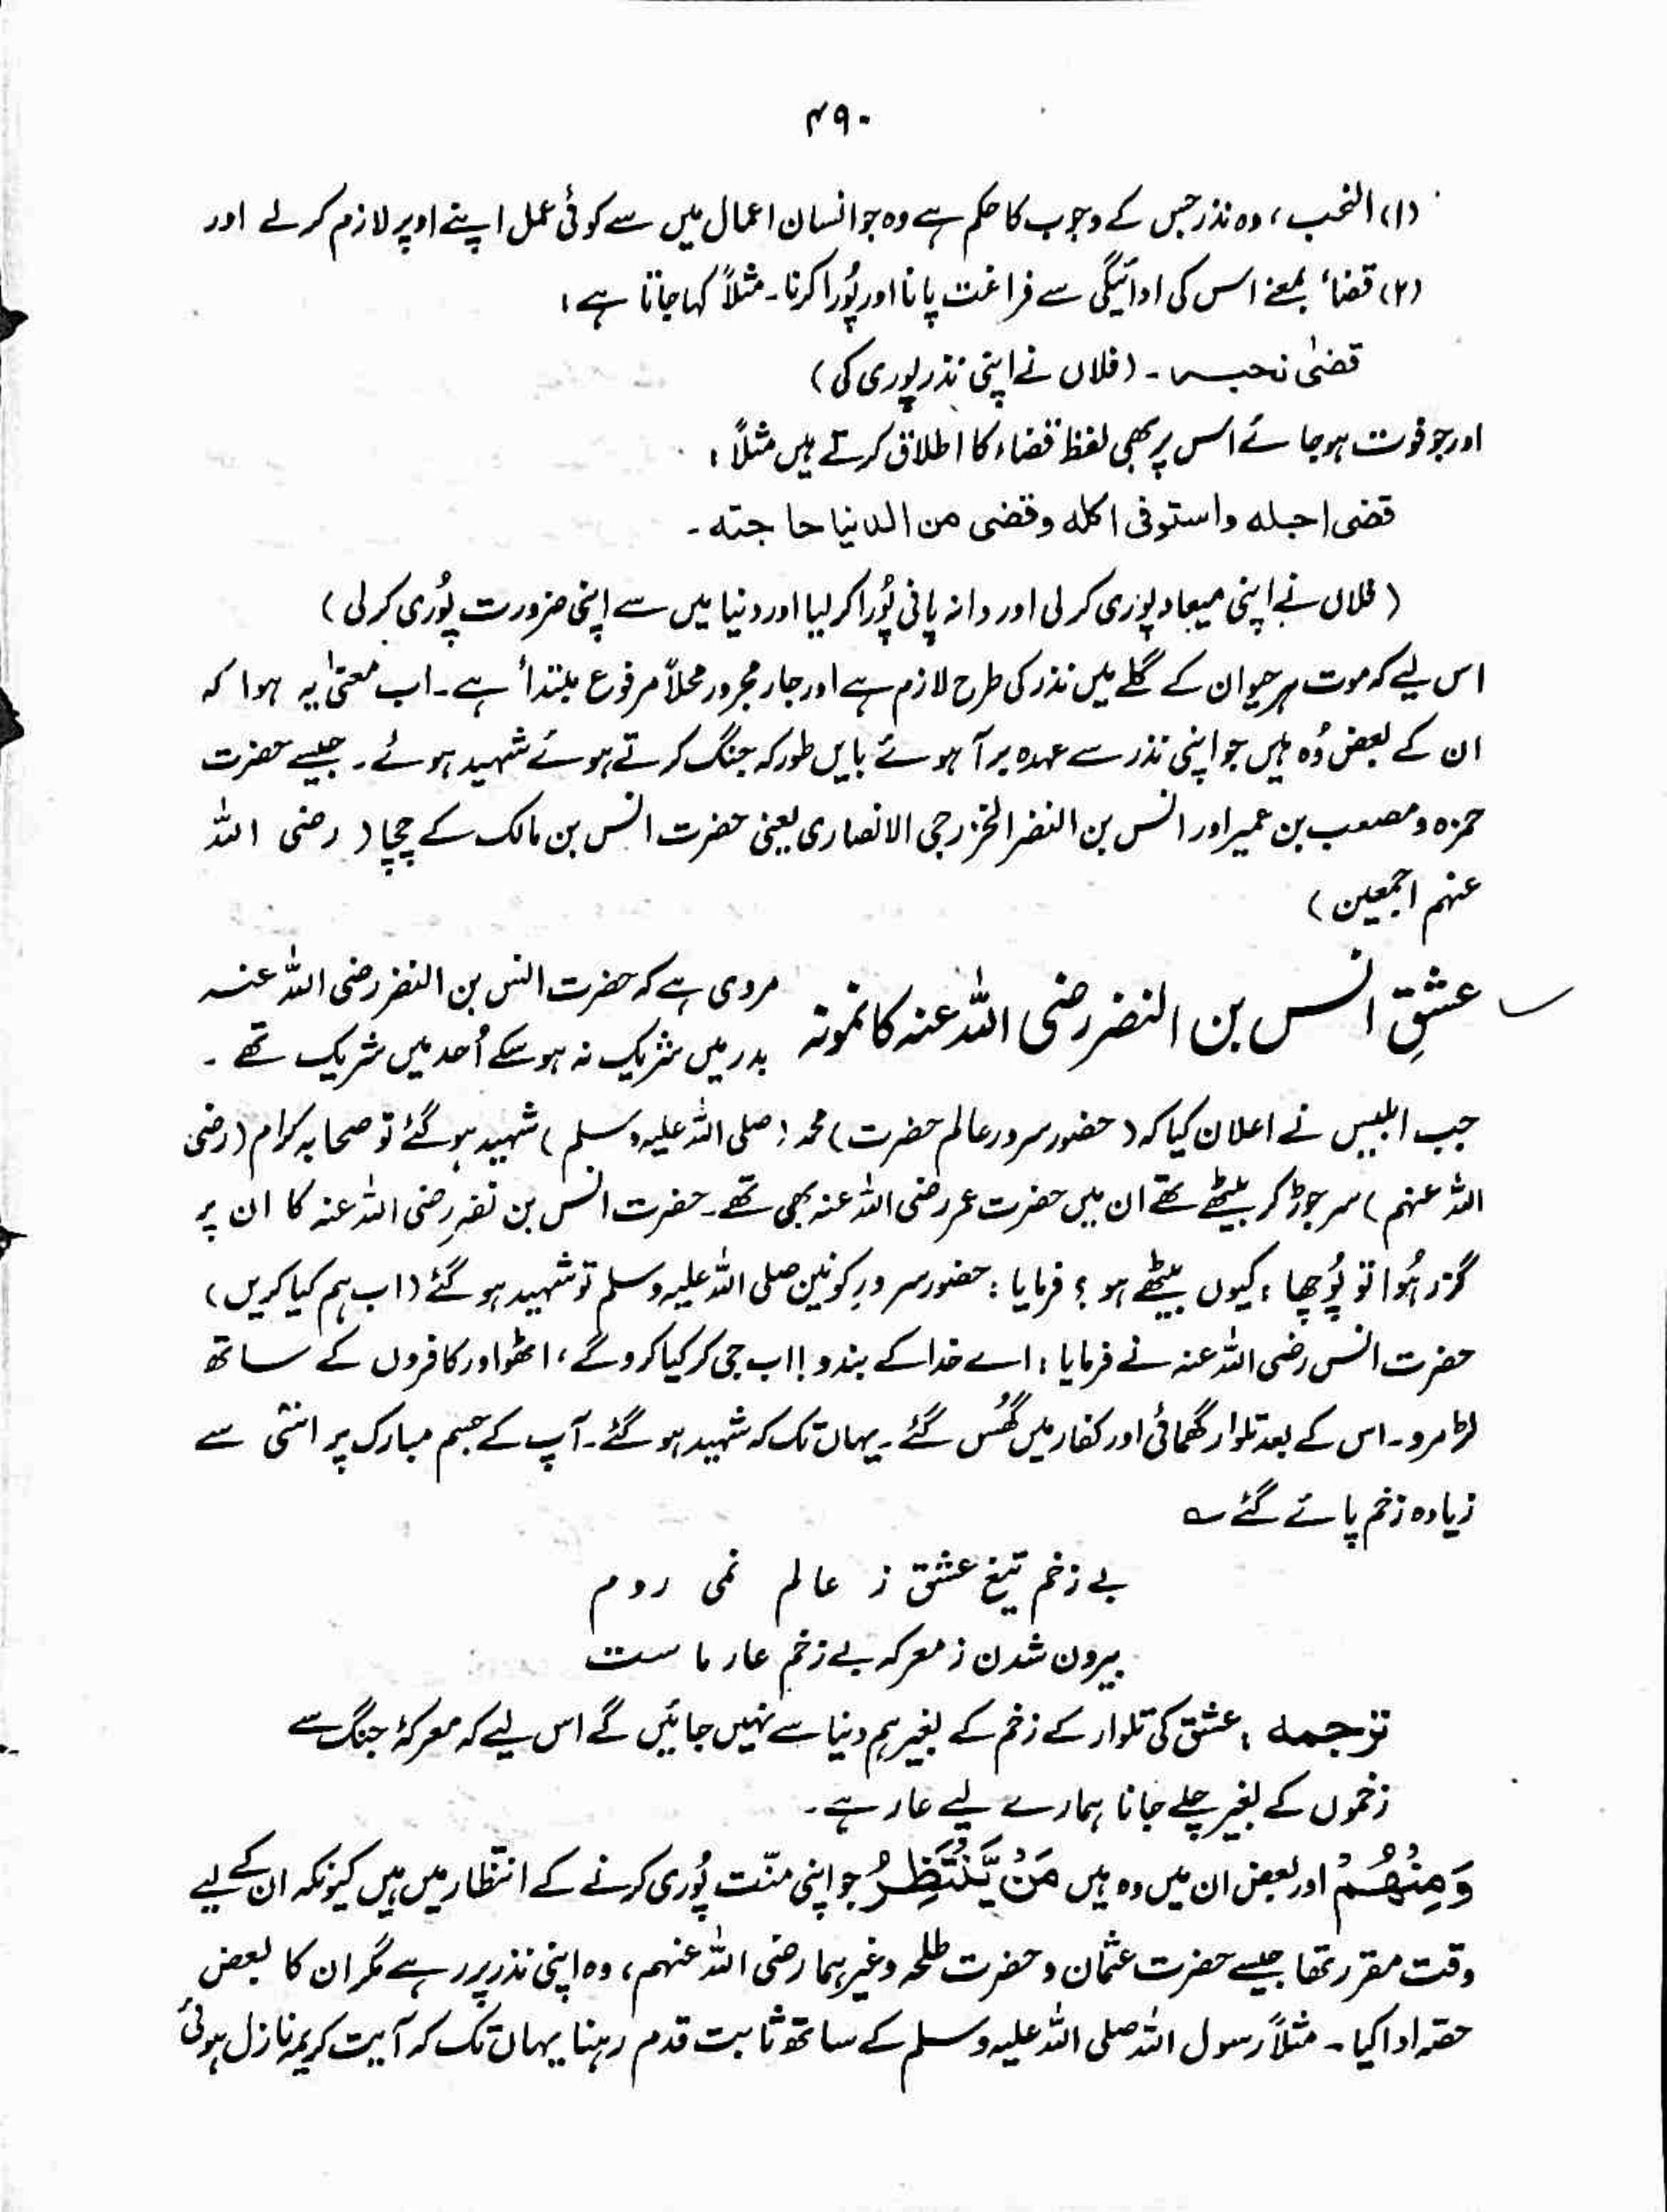 ۴۹۰
(۱) النحب، وہ نذر جس کے وجوب کا حکم ہے وہ جو انسان اعمال میں سے کوئی عمل اپنے اوپر لازم کرلے اور
(۲) قضاء بمعنے اس کی ادائیگی سے فراغت پانا اور پُورا کرنا۔ مثلاً کہا جاتا ہے؛
قضیٰ نحبہ۔ (فلاں نے اپنی نذر پوری کی)
اور جو فوت ہوجائے اس پر بھی لفظ قضاء کا اطلاق کرتے ہیں مثلاً؛
قضی اجله واستوفی اکله وقضی من الدنیا حاجته۔
(فلاں نے اپنی میعاد پوری کرلی اور دانہ پانی پُورا کرلیا اور دنیا میں سے اپنی ضرورت پُوری کرلی)
اس لیے کہ موت ہر حیوان کے گلے میں نذر کی طرح لازم ہے اور جار مجرور محلاً مرفوع مبتدأ ہے۔ اب معنیٰ یہ ہوا کہ
ان کے بعض وُہ ہیں جو اپنی نذر سے عہدہ برآ ہوئے بایں طور کہ جنگ کرتے ہوئے شہید ہوئے۔ جیسے حضرت
حمزہ و مصعب بن عمیر اور انس بن النضر الخزرجی الانصاری یعنی حضرت انس بن مالک کے چچا (رضی اللہ
عنہم اجمعین)
عشقِ انس بن النضر رضی اللہ عنہ کا نمونہ مروی ہے کہ حضرت انس بن النضر رضی اللہ عنہ
بدر میں شریک نہ ہوسکے اُحد میں شریک تھے۔
جب ابلیس نے اعلان کیا کہ (حضور سرور عالم حضرت) محمد (صلی اللہ علیہ وسلم) شہید ہوگئے تو صحابہ کرام (رضی
اللہ عنہم) سر جوڑ کر بیٹھے تھے ان میں حضرت عمر رضی اللہ عنہ بھی تھے۔ حضرت انس بن نضر رضی اللہ عنہ کا ان پر
گزر ہُوا تو پُوچھا؛ کیوں بیٹھے ہو؟ فرمایا: حضور سرورِ کونین صلی اللہ علیہ وسلم تو شہید ہوگئے (اب ہم کیا کریں)
حضرت انس رضی اللہ عنہ نے فرمایا؛ اے خدا کے بندو! اب جی کر کیا کرو گے، اٹھو اور کافروں کے ساتھ
لڑ مرو۔ اس کے بعد تلوار گھمائی اور کفار میں گھُس گئے۔ یہاں تک کہ شہید ہوگئے۔ آپ کے جسم مبارک پر اسّی سے
زیادہ زخم پائے گئے ؎
بے زخم تیغ عشق ز عالم نمی روم
بیرون شدن ز معرکہ بے زخم عار ماست
ترجمہ؛ عشق کی تلوار کے زخم کے بغیر ہم دنیا سے نہیں جائیں گے اس لیے کہ معرکۂ جنگ سے
زخموں کے بغیر چلے جانا ہمارے لیے عار ہے۔
وَمِنْهُمْ اور بعض ان میں وہ ہیں مَنْ يَّنْتَظِرُ جو اپنی منّت پُوری کرنے کے انتظار میں ہیں کیونکہ ان کے لیے
وقت مقرر تھا جیسے حضرت عثمان و حضرت طلحہ وغیرہما رضی اللہ عنہم، وہ اپنی نذر پر رہے مگر ان کا بعض
حصّہ ادا کیا۔ مثلاً رسول اللہ صلی اللہ علیہ وسلم کے ساتھ ثابت قدم رہنا یہاں تک کہ آیت کریمہ نازل ہوئی